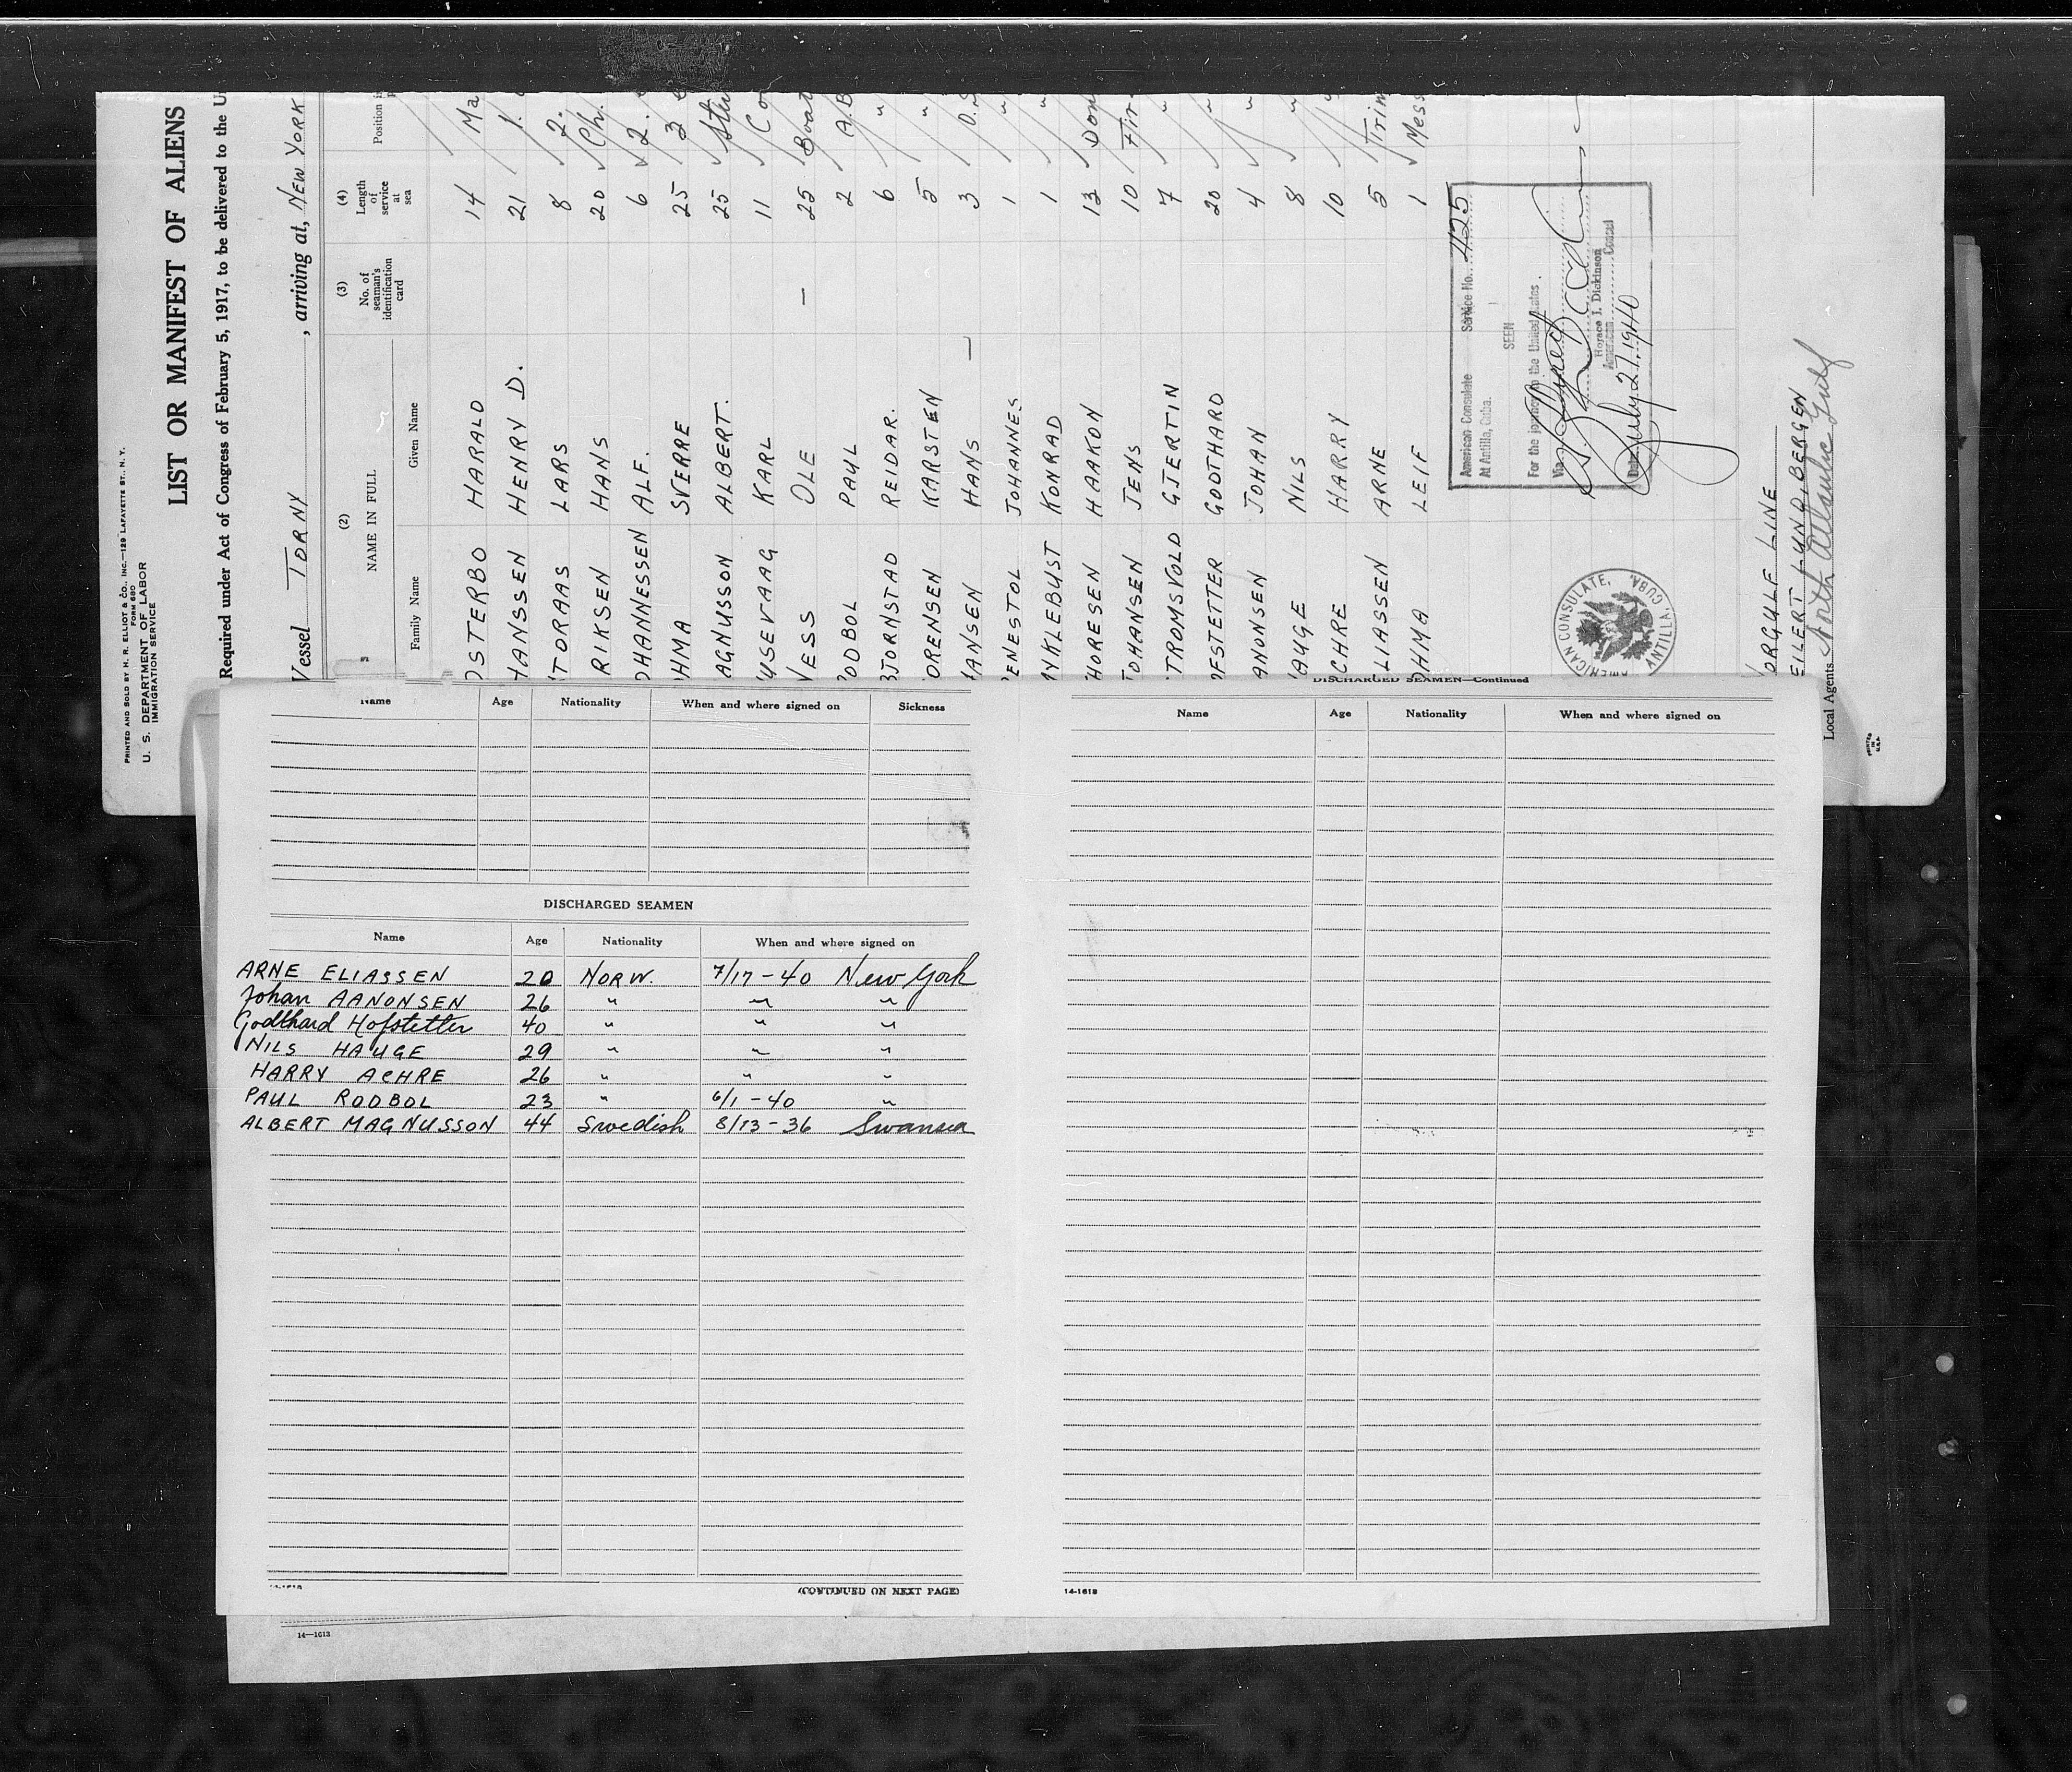 PRINTED AND SOLD BY H. R. ELLIOT & CO., INC.—129 LAFAYETTE ST., N. Y.
FORM 680
U. S. DEPARTMENT OF LABOR
IMMIGRATION SERVICE
LIST OR MANIFEST OF ALIENS
Required under Act of Congress of February 5, 1917, to be delivered to the U
Vessel TORNY, arriving at, NEW YORK
(2) (3) (4)
NAME IN FULL No. of seaman's identification card Length of service at sea Position i
Family Name Given Name
OSTERBO HARALD 14 Ma
HANSSEN HENRY D. 21 1.
TORAAS LARS 8 2.
RIKSEN HANS 20 Ch.
OHANNESSEN ALF. 6 2.
HMA SVERRE 25 3
AGNUSSON ALBERT. 25 Stu
USEVAAG KARL 11 Co
VESS OLE — 25 Boat
ODBOL PAUL 2 A.B
BJORNSTAD REIDAR. 6 "
ORENSEN KARSTEN 5 "
ANSEN HANS — 3 O.S
ENESTOL JOHANNES 1 "
NKLEBUST KONRAD 1 "
HORESEN HAAKON 13 Don
JOHANSEN JENS 10 Fir
TROMSVOLD GJERTIN 7 "
OFSTETTER GODTHARD 20 "
ANONSEN JOHAN 4 "
AUGE NILS 8 "
CHRE HARRY 10 "
LIASSEN ARNE 5 Trim
OHMA LEIF 1 Mess
American Consulate Service No. 425
At Antilla, Cuba.
SEEN
For the journey to the United States.
Via
Horace J. Dickinson
American Consul
Date July 21 1940
AMERICAN CONSULATE, ANTILLA, CUBA.
ORGULF LINE
EILERT LUND, BERGEN
Local Agents North Atlantic Gulf
PRINTED IN U.S.A.
Name Age Nationality When and where signed on Sickness
DISCHARGED SEAMEN
Name Age Nationality When and where signed on
ARNE ELIASSEN 20 NORW. 7/17-40 New York
Johan AANONSEN 26 " " "
Godthard Hofstetter 40 " " "
NILS HAUGE 29 " " "
HARRY ACHRE 26 " " "
PAUL RODBOL 23 " 6/1-40 "
ALBERT MAGNUSSON 44 Swedish 8/13-36 Swansea
(CONTINUED ON NEXT PAGE)
14—1613
DISCHARGED SEAMEN—Continued
Name Age Nationality When and where signed on
14-1613